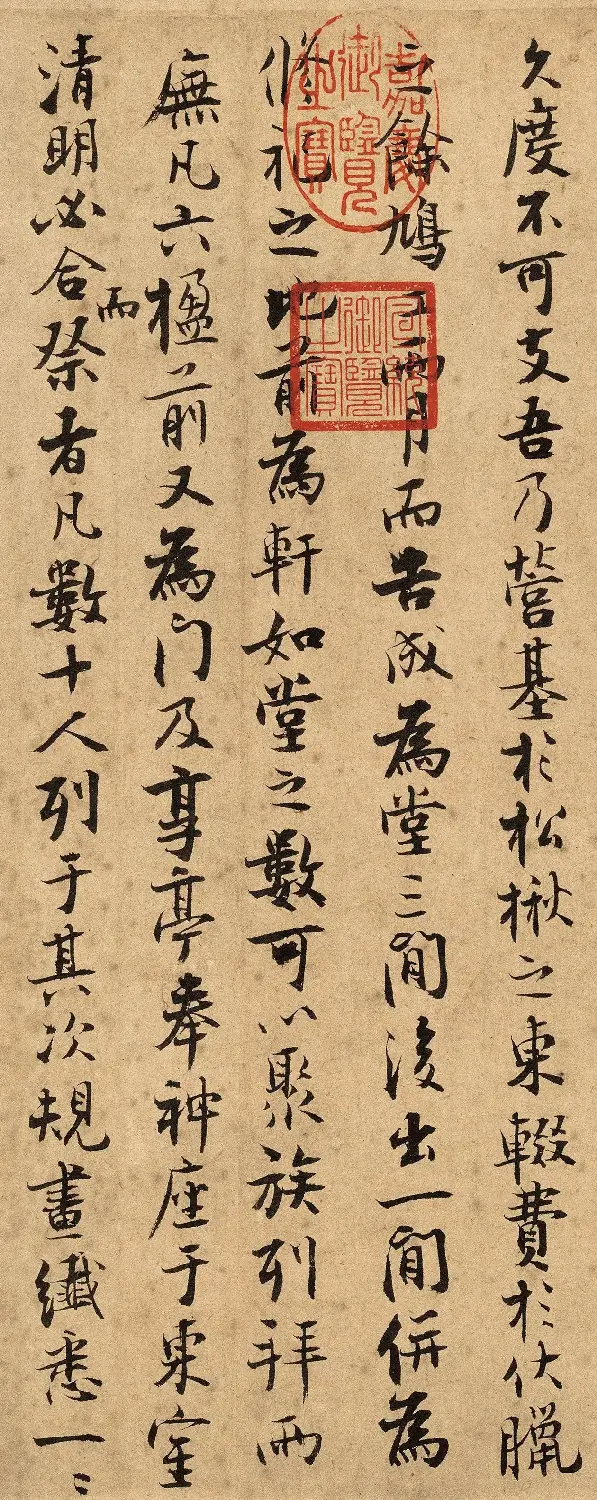 久度不可支吾乃營基於松楸之東輟費於伏臘
之餘鳩工兩月而告成為堂三間後出一間併為
脩祀之地前為軒如堂之數可以聚族列拜兩
廡凡六楹前又為門及享亭奉神座于東室
清明必合祭而者凡數十人列于其次規畫纖悉一〻
嘉慶御覽之寶
御覽之寶